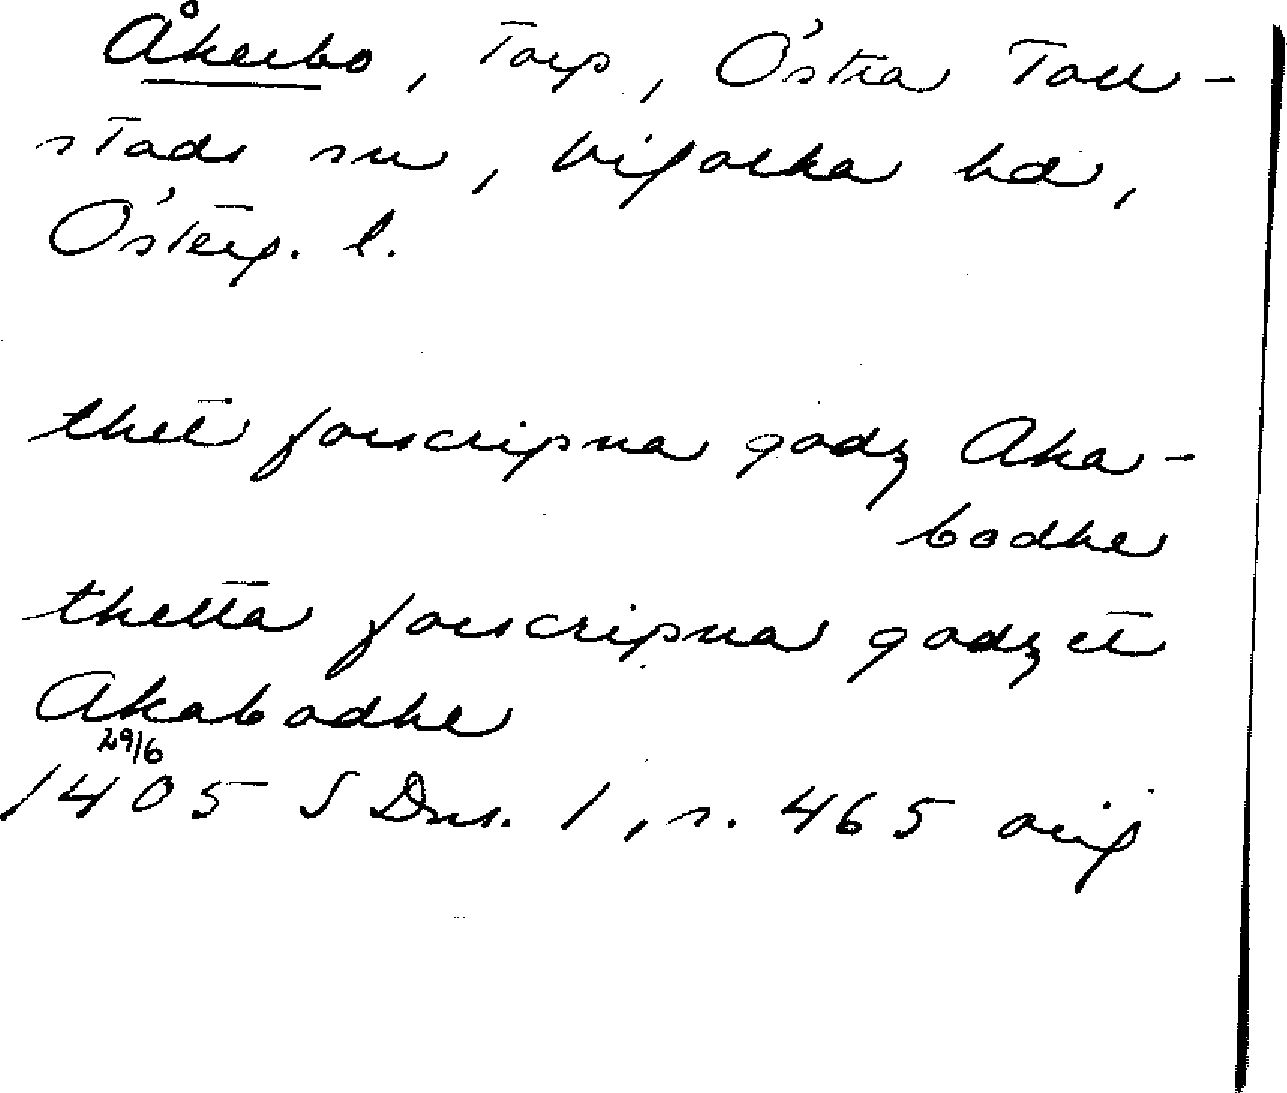 Åkerbo, Torp, Östra Toll-
stads sn, Vifolka hd,
Österg. l.
thet forscripna godz Aka-
bodhe
thetta forscripna godzet
Akabodhe
29/6
1405 SDns. 1, s. 465 orig